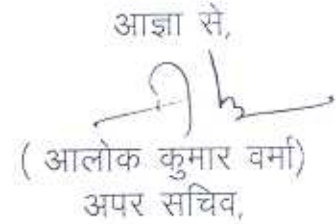 आज्ञा से,
( आलोक कुमार वर्मा)
अपर सचिव,